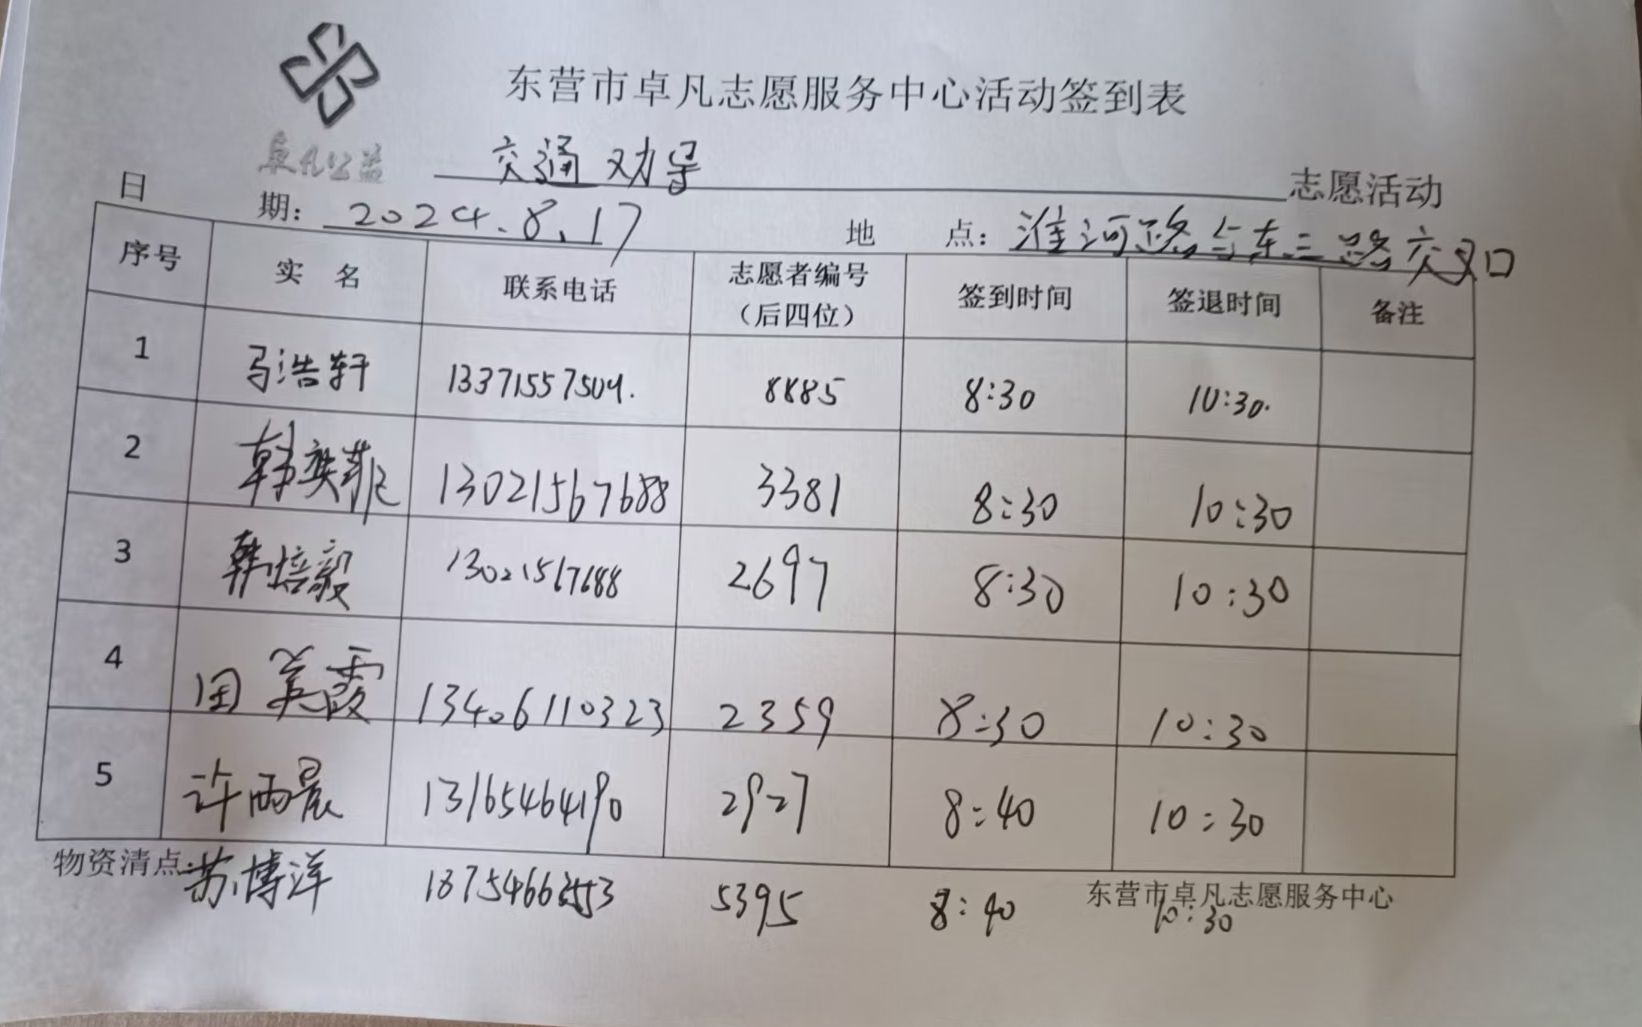 东营市卓凡志愿服务中心活动签到表
卓凡公益
交通劝导 志愿活动
日期: 2024.8.17 地点: 淮河路与东三路交叉口
序号 实名 联系电话 志愿者编号(后四位) 签到时间 签退时间 备注
1 马浩轩 13371557504. 8885 8:30 10:30.
2 韩奕菲 13021567688 3381 8:30 10:30
3 韩培毅 13021567688 2697 8:30 10:30
4 田美霞 13406110323 2359 8:30 10:30
5 许雨晨 13165464190 2927 8:40 10:30
物资清点: 东营市卓凡志愿服务中心
苏博洋 5395 8:40 10:30